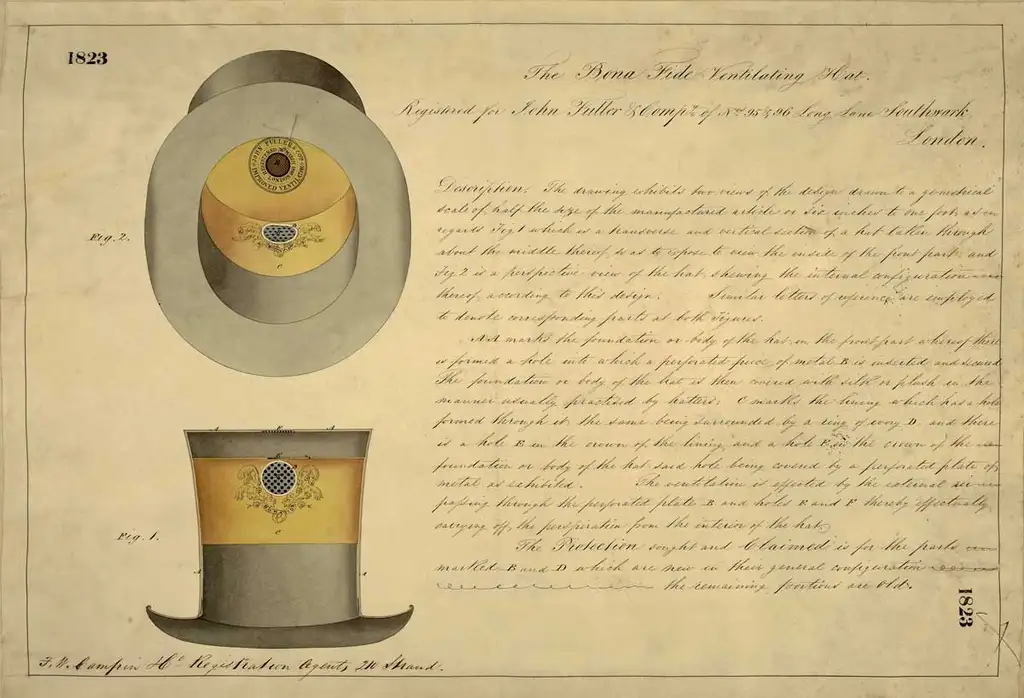 1823
The Bona Fide Ventilating Hat.
Registered for John Fuller & Compy of Nos 95 & 96 Long Lane Southwark
London.
Description. The drawing exhibits two views of the design drawn to a geometrical
scale of half the size of the manufactured article or six inches to one foot as
regards Fig 1 which is a transverse and vertical section of a hat taken through
about the middle thereof so as to expose to view the inside of the front part and
Fig 2 is a perspective view of the hat shewing the internal configuration
thereof according to this design. Similar letters of reference are employed
to denote corresponding parts at both Figures.
AA marks the foundation or body of the hat in the front part whereof there
is formed a hole into which a perforated piece of metal B is inserted and secured
The foundation or body of the hat is then covered with silk or plush in the
manner usually practised by hatters: C marks the lining which has a hole
formed through it the same being surrounded by a ring of ivory D, and there
is a hole E in the crown of the lining and a hole F in the crown of the
foundation or body of the hat said hole being covered by a perforated plate of
metal as exhibited. The ventilation is effected by the external air
passing through the perforated plate B and holes E and F thereby effectually
carrying off the perspiration from the interior of the hat.
The Protection sought and Claimed is for the parts
marked B and D which are new in their general configuration
the remaining portions are Old.
Fig. 2.
JOHN FULLER & COY
IMPROVED VENTILATOR
LONDON
C
Fig. 1.
A
A
C
A
A
F. W. Campin Hd Registration Agents, 210 Strand.
1823